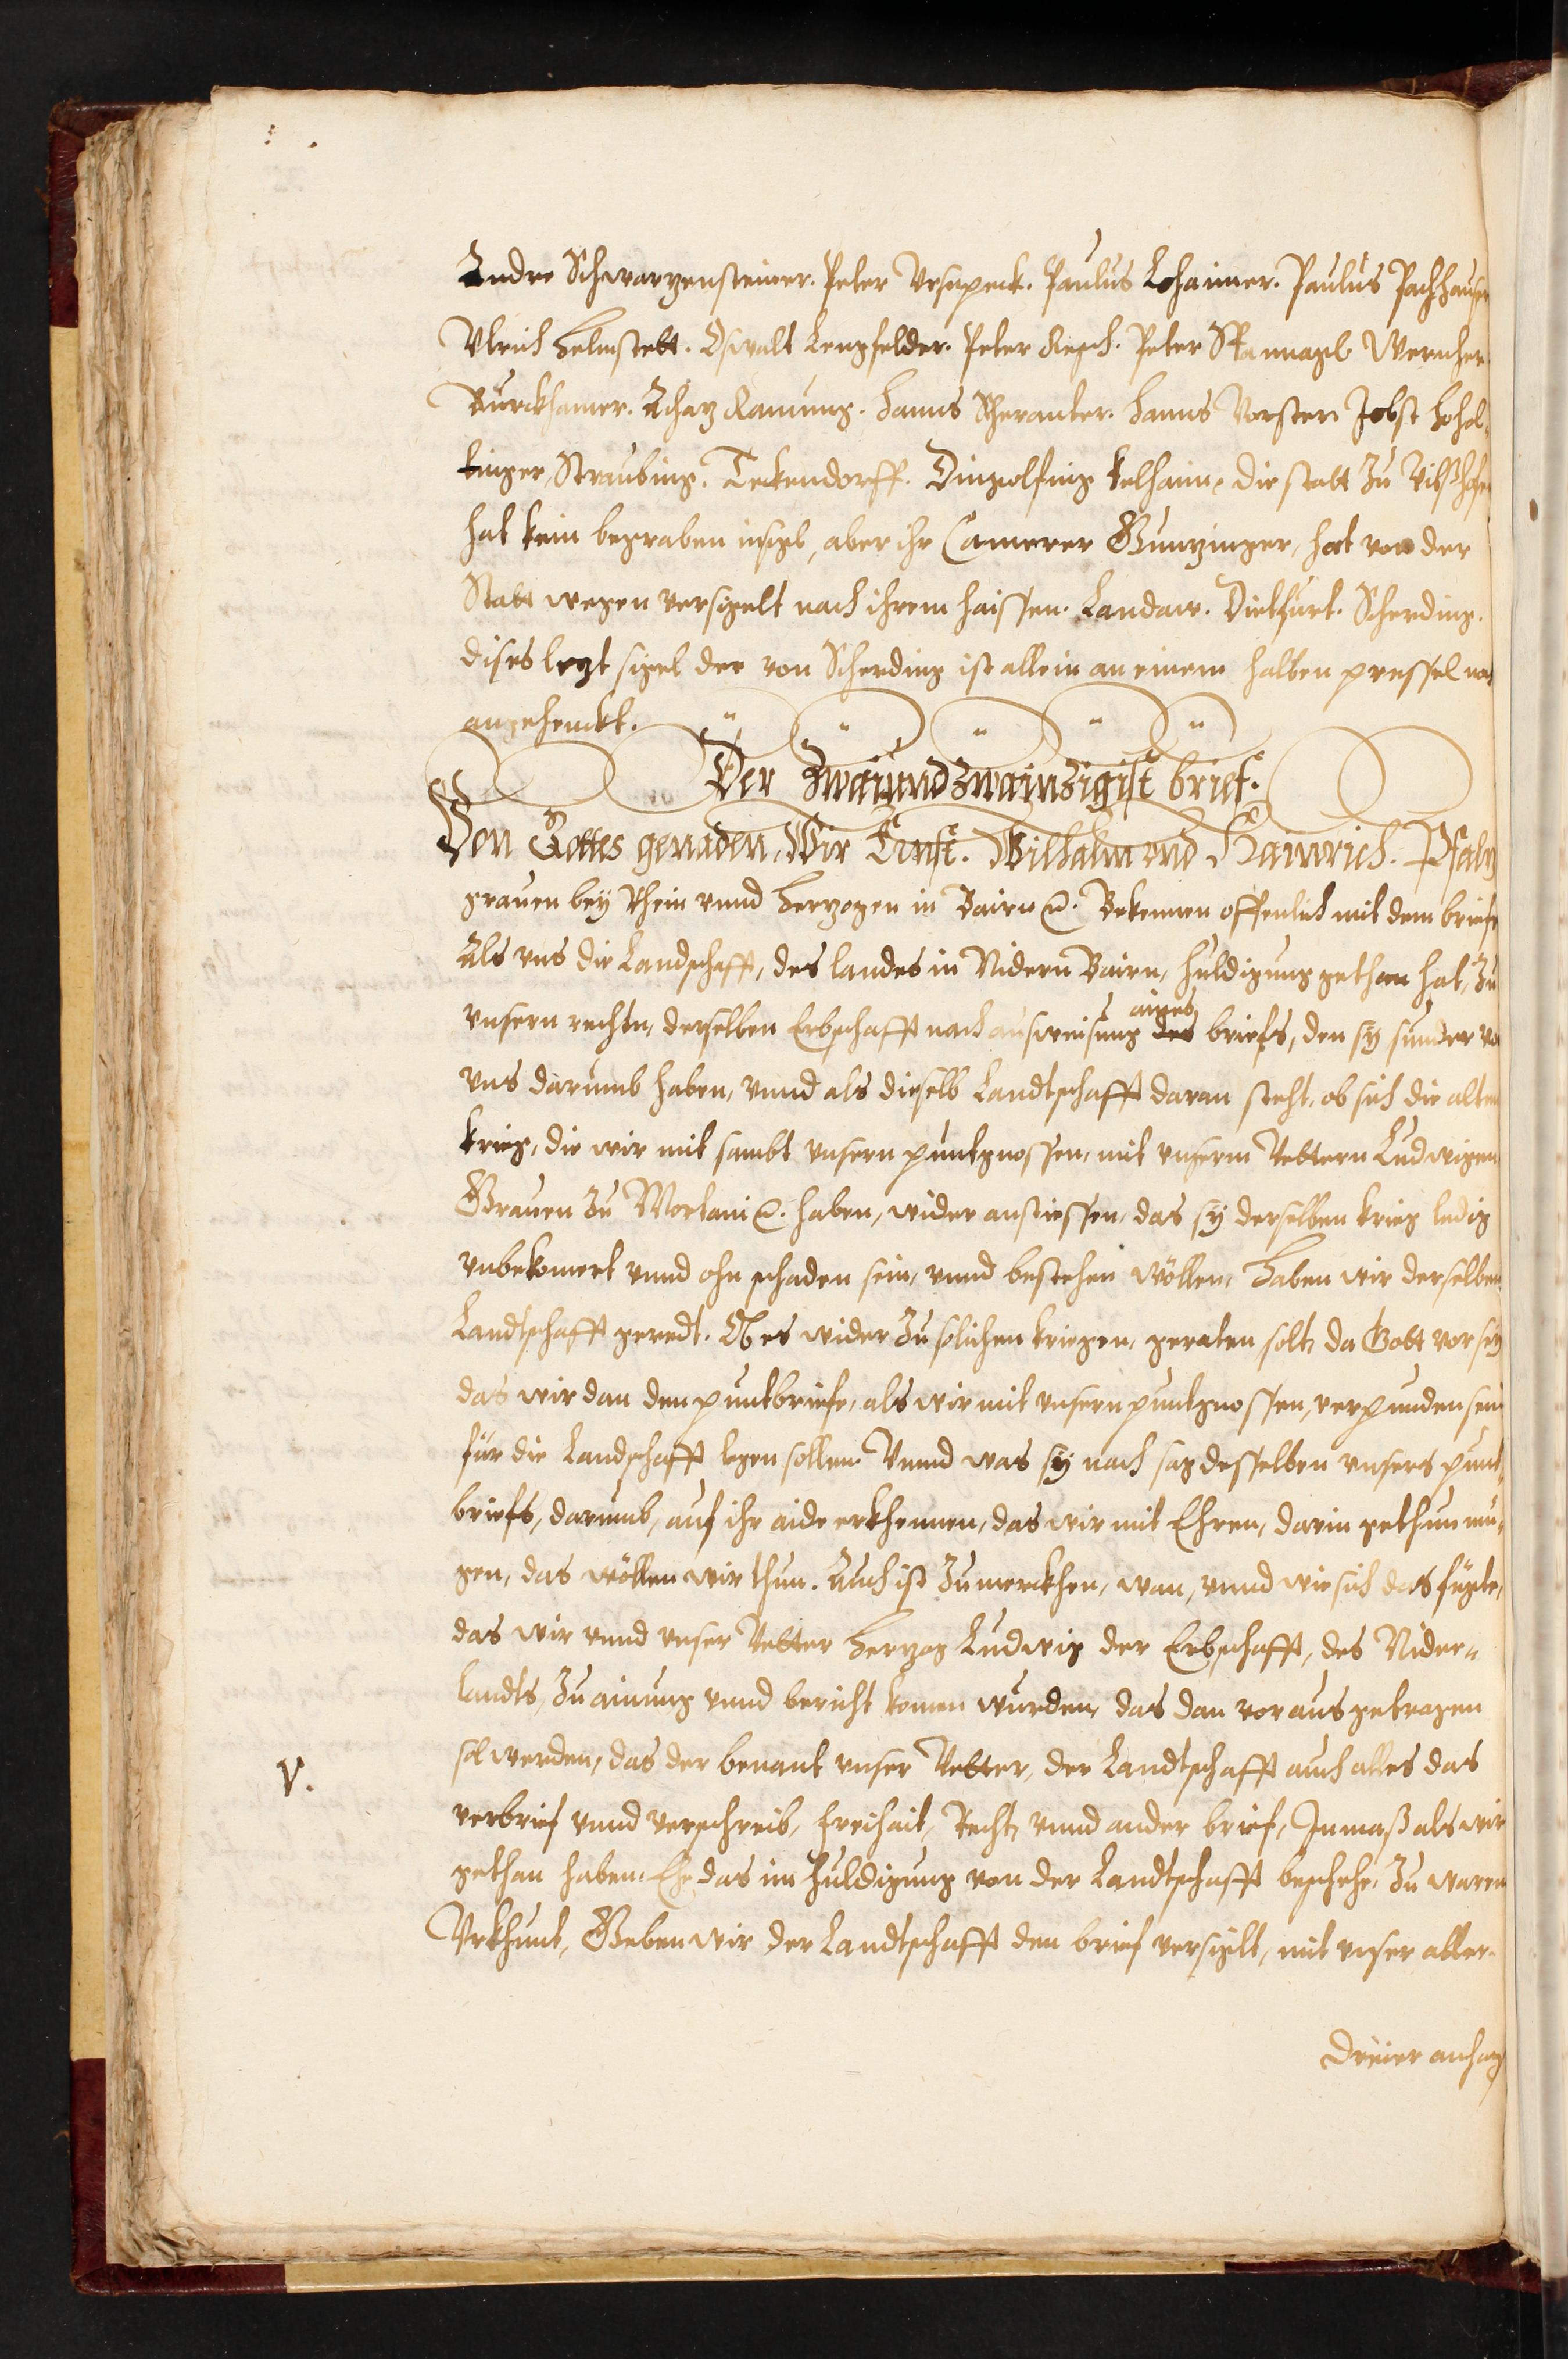 Andre Schwarzensteiner. Peter Ursnpeck. Paulus Lohaimer. Paulus Pachhauser
Ulrich Helmstedt. Oswalt Lengfelder. Peter Resch. Peter Stannagl Wernher
Burckhamer. Achaz Ramung. Hanns Schrancker. Hanns Vorster. Jobst Hohol-
tinger, Straubing. Teckendorff. Dingolfing kelhaim. die statt zu Vilßhofen
hat kein begraben insigl, aber ihr Camerer Gunzinger, hat von der
Statt wegen versigelt nach ihrem haissen. Landaw. Dietfurt. Scherding.
dises lezt sigel der von Scherding ist allein an einem halben pressel
angehenckt.
Der zwaiundzwainzigist brief.
Von Gottes genaden. Wir Ernst. Wilhalm und Hainrich. Pfalz
grauen bey Rhein unnd Herzogen in Bairn etc. Bekennen offenlich mit dem briefe
Als uns die Landschafft, des landes in Nidern Bairn, huldigung gethan hat, zu
unsern rechtn, derselben Erbschafft nach ausweisung des aines briefs, den sy sunder von
uns darumb haben, unnd als dieselb Landtschafft daran steht, ob sich die alten
krieg, die wir mit sambt unsern puntgnossen, mit unserm Vettern Ludwigen
Grauen zu Mortani etc. haben, wider anstiessen, das sy derselben krieg ledig
unbekomert unnd ohn schaden sein, unnd bestehen wöllen, Haben wir derselben
Landtschafft geredt. Ob es wider zu solichen kriegen, geraten solt, da Gott vor sey
das wir dan den puntbriefe, als wir mit unsern puntgnossen, verpunden sein
für die Landschafft legen sollen. Unnd was sy nach sag desselben unsers punt-
briefs, darumb, auf ihr aide erkhennen, das wir mit Ehren, darin gethun mu-
gen, das wöllen wir thun. Auch ist zumerckhen, wan, unnd wie sich das fügte,
das wir unnd unser Vetter Herzog Ludwig der Erbschafft, des Nider-
landts, zu ainung unnd bericht komen wurden, das dan voraus getragen
sol werden, das der benant unser Vetter, der Landtschafft auch alles das
V.
verbrief unnd verschreib, freihait, Recht, unnd ander brief, Inmaß als wir
gethan haben. Ehe das im huldigung von der Landtschafft beschehe, zu warem
Urkhunt, Geben wir der Landtschafft den brief versiglt, mit unser aller
dreier anhang